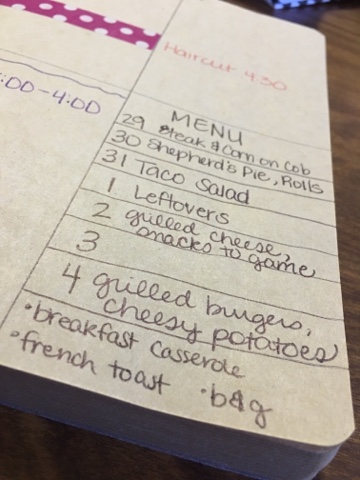 Haircut 4:30
:00-4:00
MENU
29 steak & Corn on Cob
30 Shepherd's Pie, Rolls
31 Taco Salad
1 Leftovers
2 grilled cheese,
snacks to game
3
4 grilled burgers,
cheesy potatoes
• breakfast casserole
• french toast • b&g